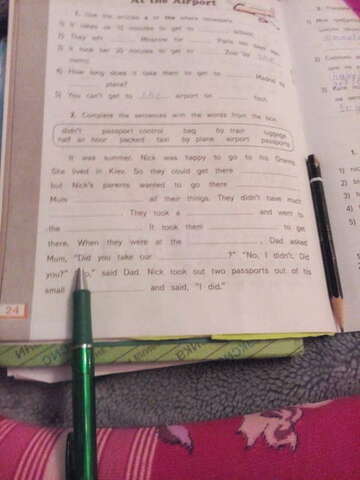 At the Airport
1. Use the articles a or the where necessary.
1) It takes us 10 minutes to get to ___ school.
2) They left ___ Moscow for ___ Paris last
3) It took her 20 minutes to get to ___ Zoo by the
metro.
4) How long does it take them to get to ___ Madrid by
___ plane?
5) You can't get to the airport on ___ foot.
2. Complete the sentences with the words from the box.
didn't passport control bag by train luggage
half an hour packed taxi by plane airport passports
It was summer. Nick was happy to go to his Granny.
She lived in Kiev. So they could get there ___
but Nick's parents wanted to go there ___
Mum ___ all their things. They didn't have much
___. They took a ___ and went to
the ___. It took them ___ to get
there. When they were at the ___, Dad asked
Mum, "Did you take our ___?" "No, I didn't. Did
you?" "No," said Dad. Nick took out two passports out of his
small ___ and said, "I did."
24